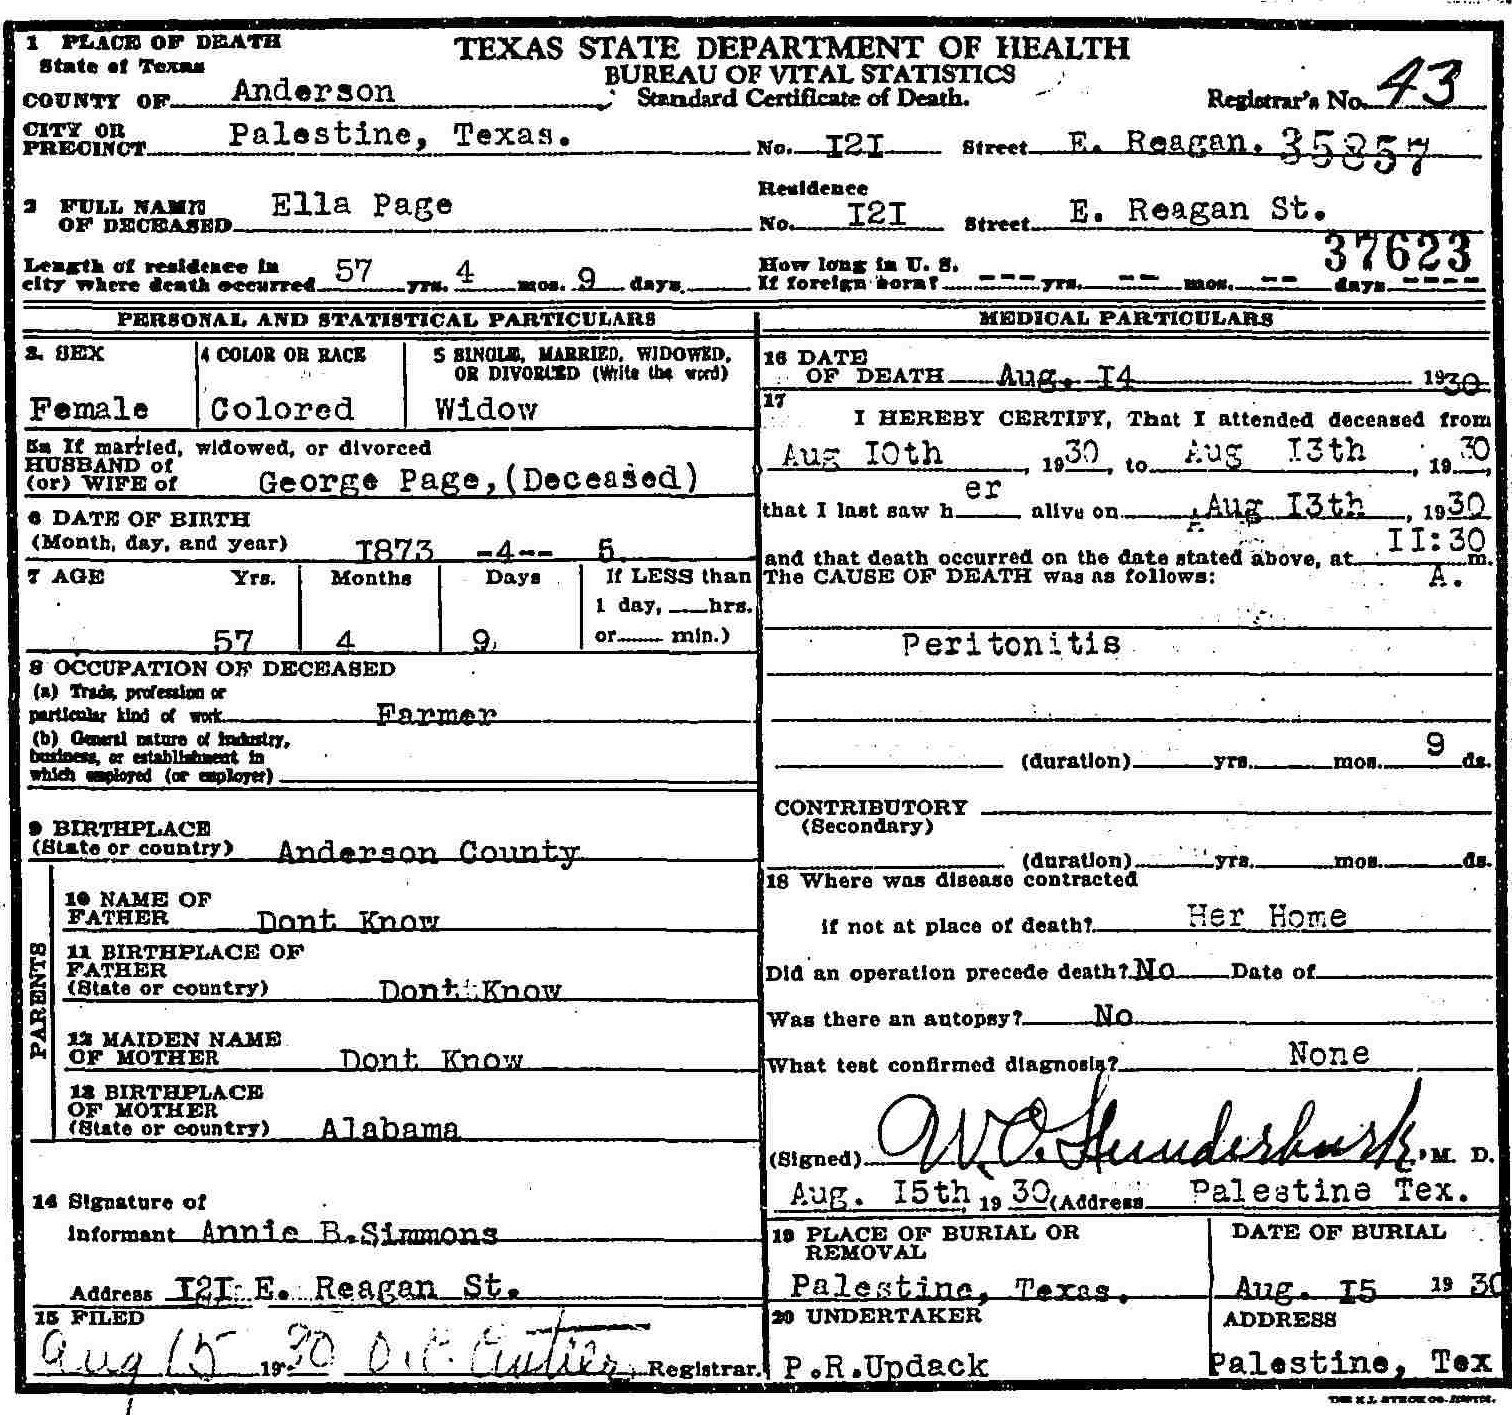 TEXAS STATE DEPARTMENT OF HEALTH
BUREAU OF VITAL STATISTICS
Standard Certificate of Death.
1 PLACE OF DEATH
State of Texas
COUNTY OF Anderson
Registrar's No. 43
CITY OR PRECINCT Palestine, Texas. No. I2I Street E. Reagan. 35857
2 FULL NAME OF DECEASED Ella Page
Residence No. I2I Street E. Reagan St.
37623
Length of residence in city where death occurred 57 yrs. 4 mos. 9 days.
How long in U. S. If foreign born? --- yrs. -- mos. -- days ----
PERSONAL AND STATISTICAL PARTICULARS
3. SEX Female
4 COLOR OR RACE Colored
5 SINGLE, MARRIED, WIDOWED, OR DIVORCED (Write the word) Widow
5a If married, widowed, or divorced
HUSBAND of
(or) WIFE of George Page,(Deceased)
6 DATE OF BIRTH
(Month, day, and year) I873 -4-- 5
7 AGE Yrs. Months Days If LESS than
1 day, hrs.
57 4 9 or min.)
8 OCCUPATION OF DECEASED
(a) Trade, profession or
particular kind of work Farmer
(b) General nature of industry,
business, or establishment in
which employed (or employer)
9 BIRTHPLACE
(State or country) Anderson County
PARENTS
10 NAME OF
FATHER Dont Know
11 BIRTHPLACE OF
FATHER
(State or country) Dont Know
12 MAIDEN NAME
OF MOTHER Dont Know
13 BIRTHPLACE
OF MOTHER
(State or country) Alabama
14 Signature of
Informant Annie B.Simmons
Address I2I E. Reagan St.
15 FILED
Aug 15 1930 Registrar.
MEDICAL PARTICULARS
16 DATE
OF DEATH Aug. I4 1930
17
I HEREBY CERTIFY, That I attended deceased from
Aug I0th, 1930, to Aug I3th, 1930,
that I last saw her alive on Aug I3th, 1930
and that death occurred on the date stated above, at II:30 A. m.
The CAUSE OF DEATH was as follows:
Peritonitis
(duration) yrs. mos. 9 ds.
CONTRIBUTORY
(Secondary)
(duration) yrs. mos. ds.
18 Where was disease contracted
if not at place of death? Her Home
Did an operation precede death? No Date of
Was there an autopsy? No
What test confirmed diagnosis? None
(Signed) W.O. Funderburk, M. D.
Aug. I5th, 19 30 (Address Palestine Tex.
19 PLACE OF BURIAL OR
REMOVAL
Palestine, Texas.
DATE OF BURIAL
Aug. I5 19 30
20 UNDERTAKER
P.R.Updack
ADDRESS
Palestine, Tex